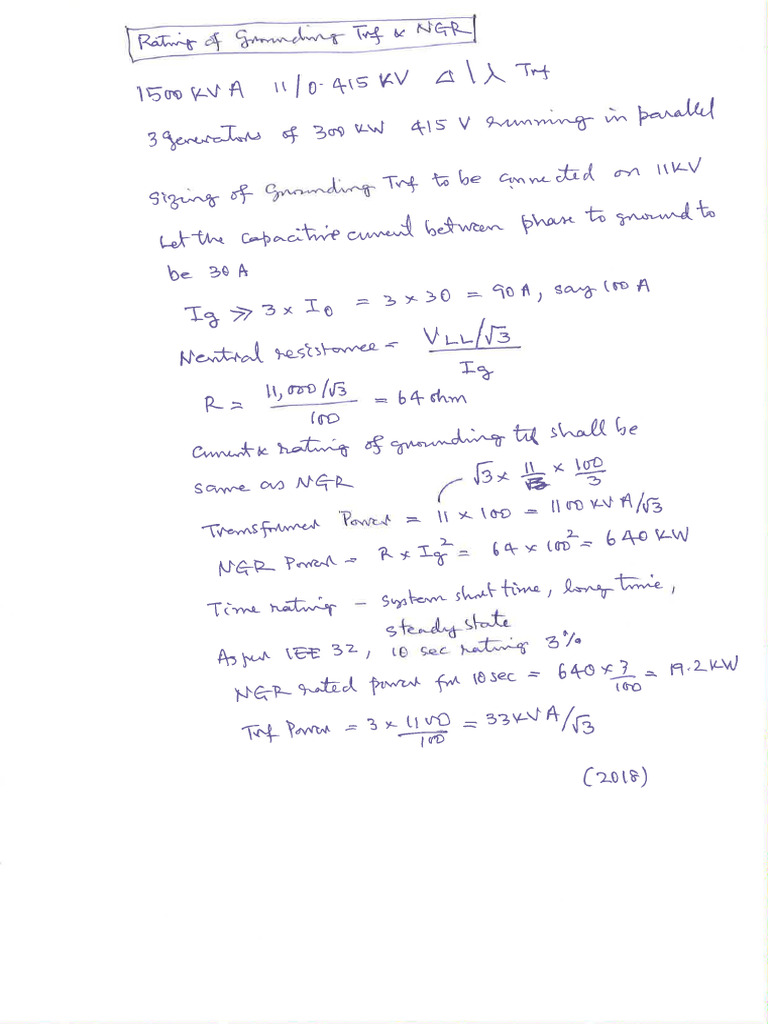 Rating of Grounding Trf & NGR
1500 KVA 11/0.415 KV Δ/⅄ Trf
3 generators of 300 KW 415 V running in parallel
Sizing of Grounding Trf to be connected on 11KV
Let the capacitive current between phase to ground to
be 30 A
Ig ≫ 3 x I0 = 3 x 30 = 90 A, say 100 A
Neutral resistance = VLL/√3 / Ig
R = 11,000/√3 / 100 = 64 ohm
Current & rating of grounding trf shall be
same as NGR
√3 x 11/√3 x 100/3
Transformer Power = 11 x 100 = 1100 KVA/√3
NGR Power = R x Ig² = 64 x 100² = 640 KW
Time rating – system short time, long time,
steady state
As per IEE 32, 10 sec rating 3%
NGR rated power for 10 sec = 640 x 3/100 = 19.2 KW
Trf Power = 3 x 1100/100 = 33 KVA/√3
(2018)